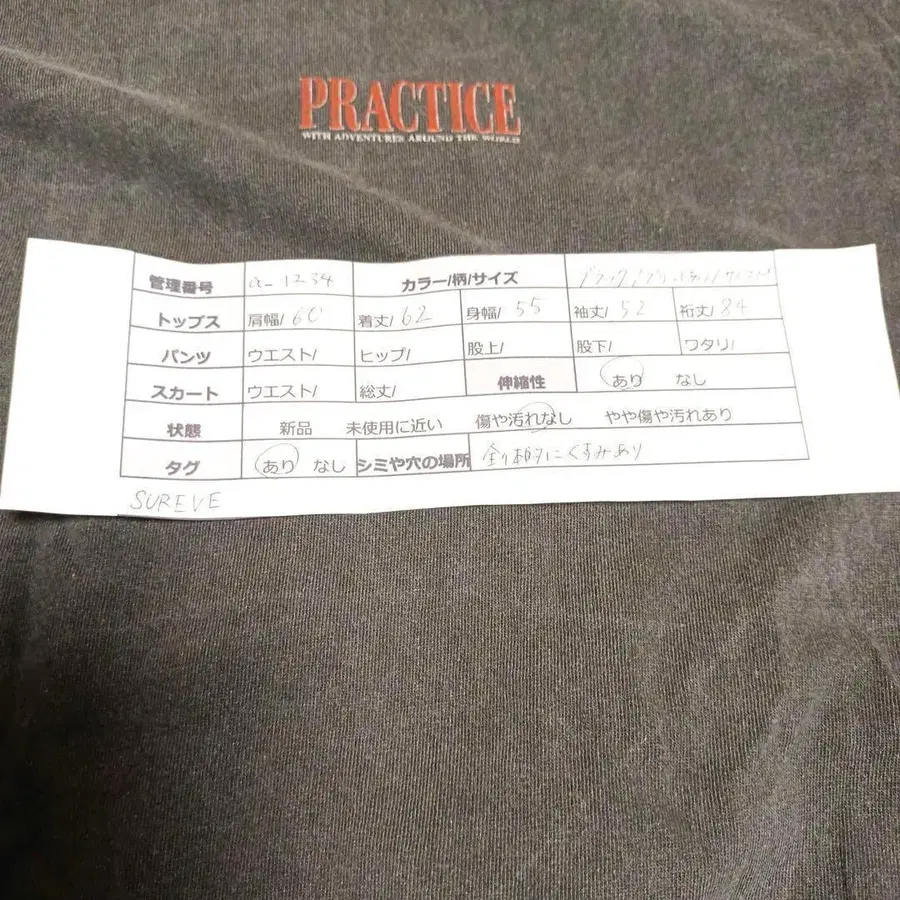 PRACTICE
WITH ADVENTURES AROUND THE WORLD
管理番号 a-1234 カラー/柄/サイズ ブラック/プリント
トップス 肩幅/60 着丈/62 身幅/55 袖丈/52 裄丈/84
パンツ ウエスト/ ヒップ/ 股上/ 股下/ ワタリ/
スカート ウエスト/ 総丈/ 伸縮性 あり なし
状態 新品 未使用に近い 傷や汚れなし やや傷や汚れあり
タグ あり なし シミや穴の場所 全体的にくすみあり
SUREVE